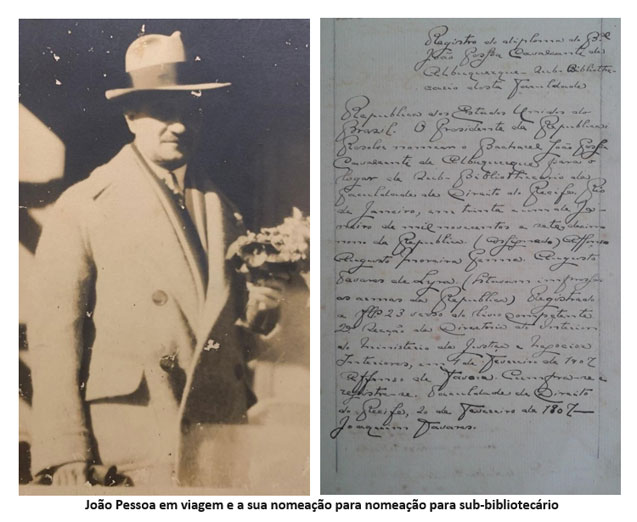 Registro do diploma do B.el
João Pessôa Cavalcante de
Albuquerque Sub-Bibliothe-
cario desta Faculdade
Republica dos Estados Unidos do
Brasil. O Presidente da Republica
Resolve nomear o Bacharel João Pessôa
Cavalcante de Albuquerque, para o
logar de Sub-Bibliothecario da
Faculdade de Direito do Recife. Rio
de Janeiro, em trinta um de Ja-
neiro de mil novecentos e sete, decimo
nono da Republica (assignado) Affonso
Augusto Moreira Penna. Augusto
Tavares de Lyra. (Estavam impressas
as armas da Republica) Registrado
a fls 23 verso do livro competente
2ª Secção da Directoria do Interior
do Ministerio da Justiça e Negocios
Interiores, em de Fevereiro de 1907
Affonso de Cumpra-se e
registre-se. Faculdade de Direito
do Recife, 20 de Fevereiro de 1907
Joaquim Tavares.
João Pessoa em viagem e a sua nomeação para nomeação para sub-bibliotecário